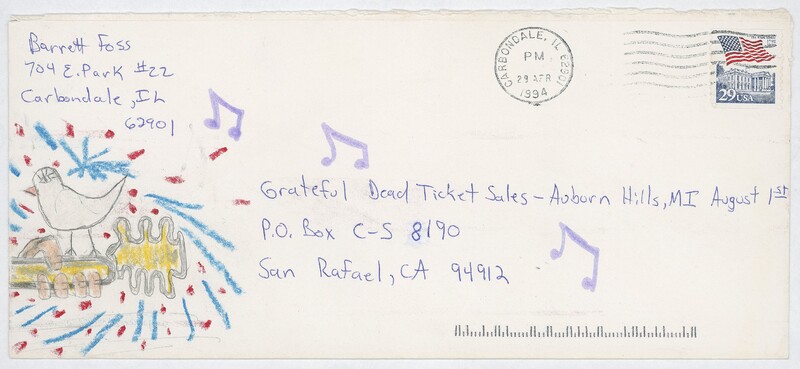 Barrett Foss
704 E. Park #22
Carbondale, IL
62901
CARBONDALE, IL 62901
PM
29 APR
1994
29 USA
Grateful Dead Ticket Sales - Auborn Hills, MI August 1st
P.O. Box C-S 8190
San Rafael, CA 94912